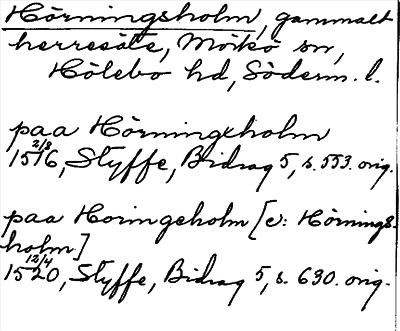 Hörningsholm, gammalt
herresäte, Mörkö sn,
Hölebo hd, Söderm. l.
paa Hörningeholm
1516 2/8, Styffe, Bidrag 5, s. 553. orig.
paa Horingeholm [o: Hörnings-
holm]
1520 12/4, Styffe, Bidrag 5, s. 630. orig.